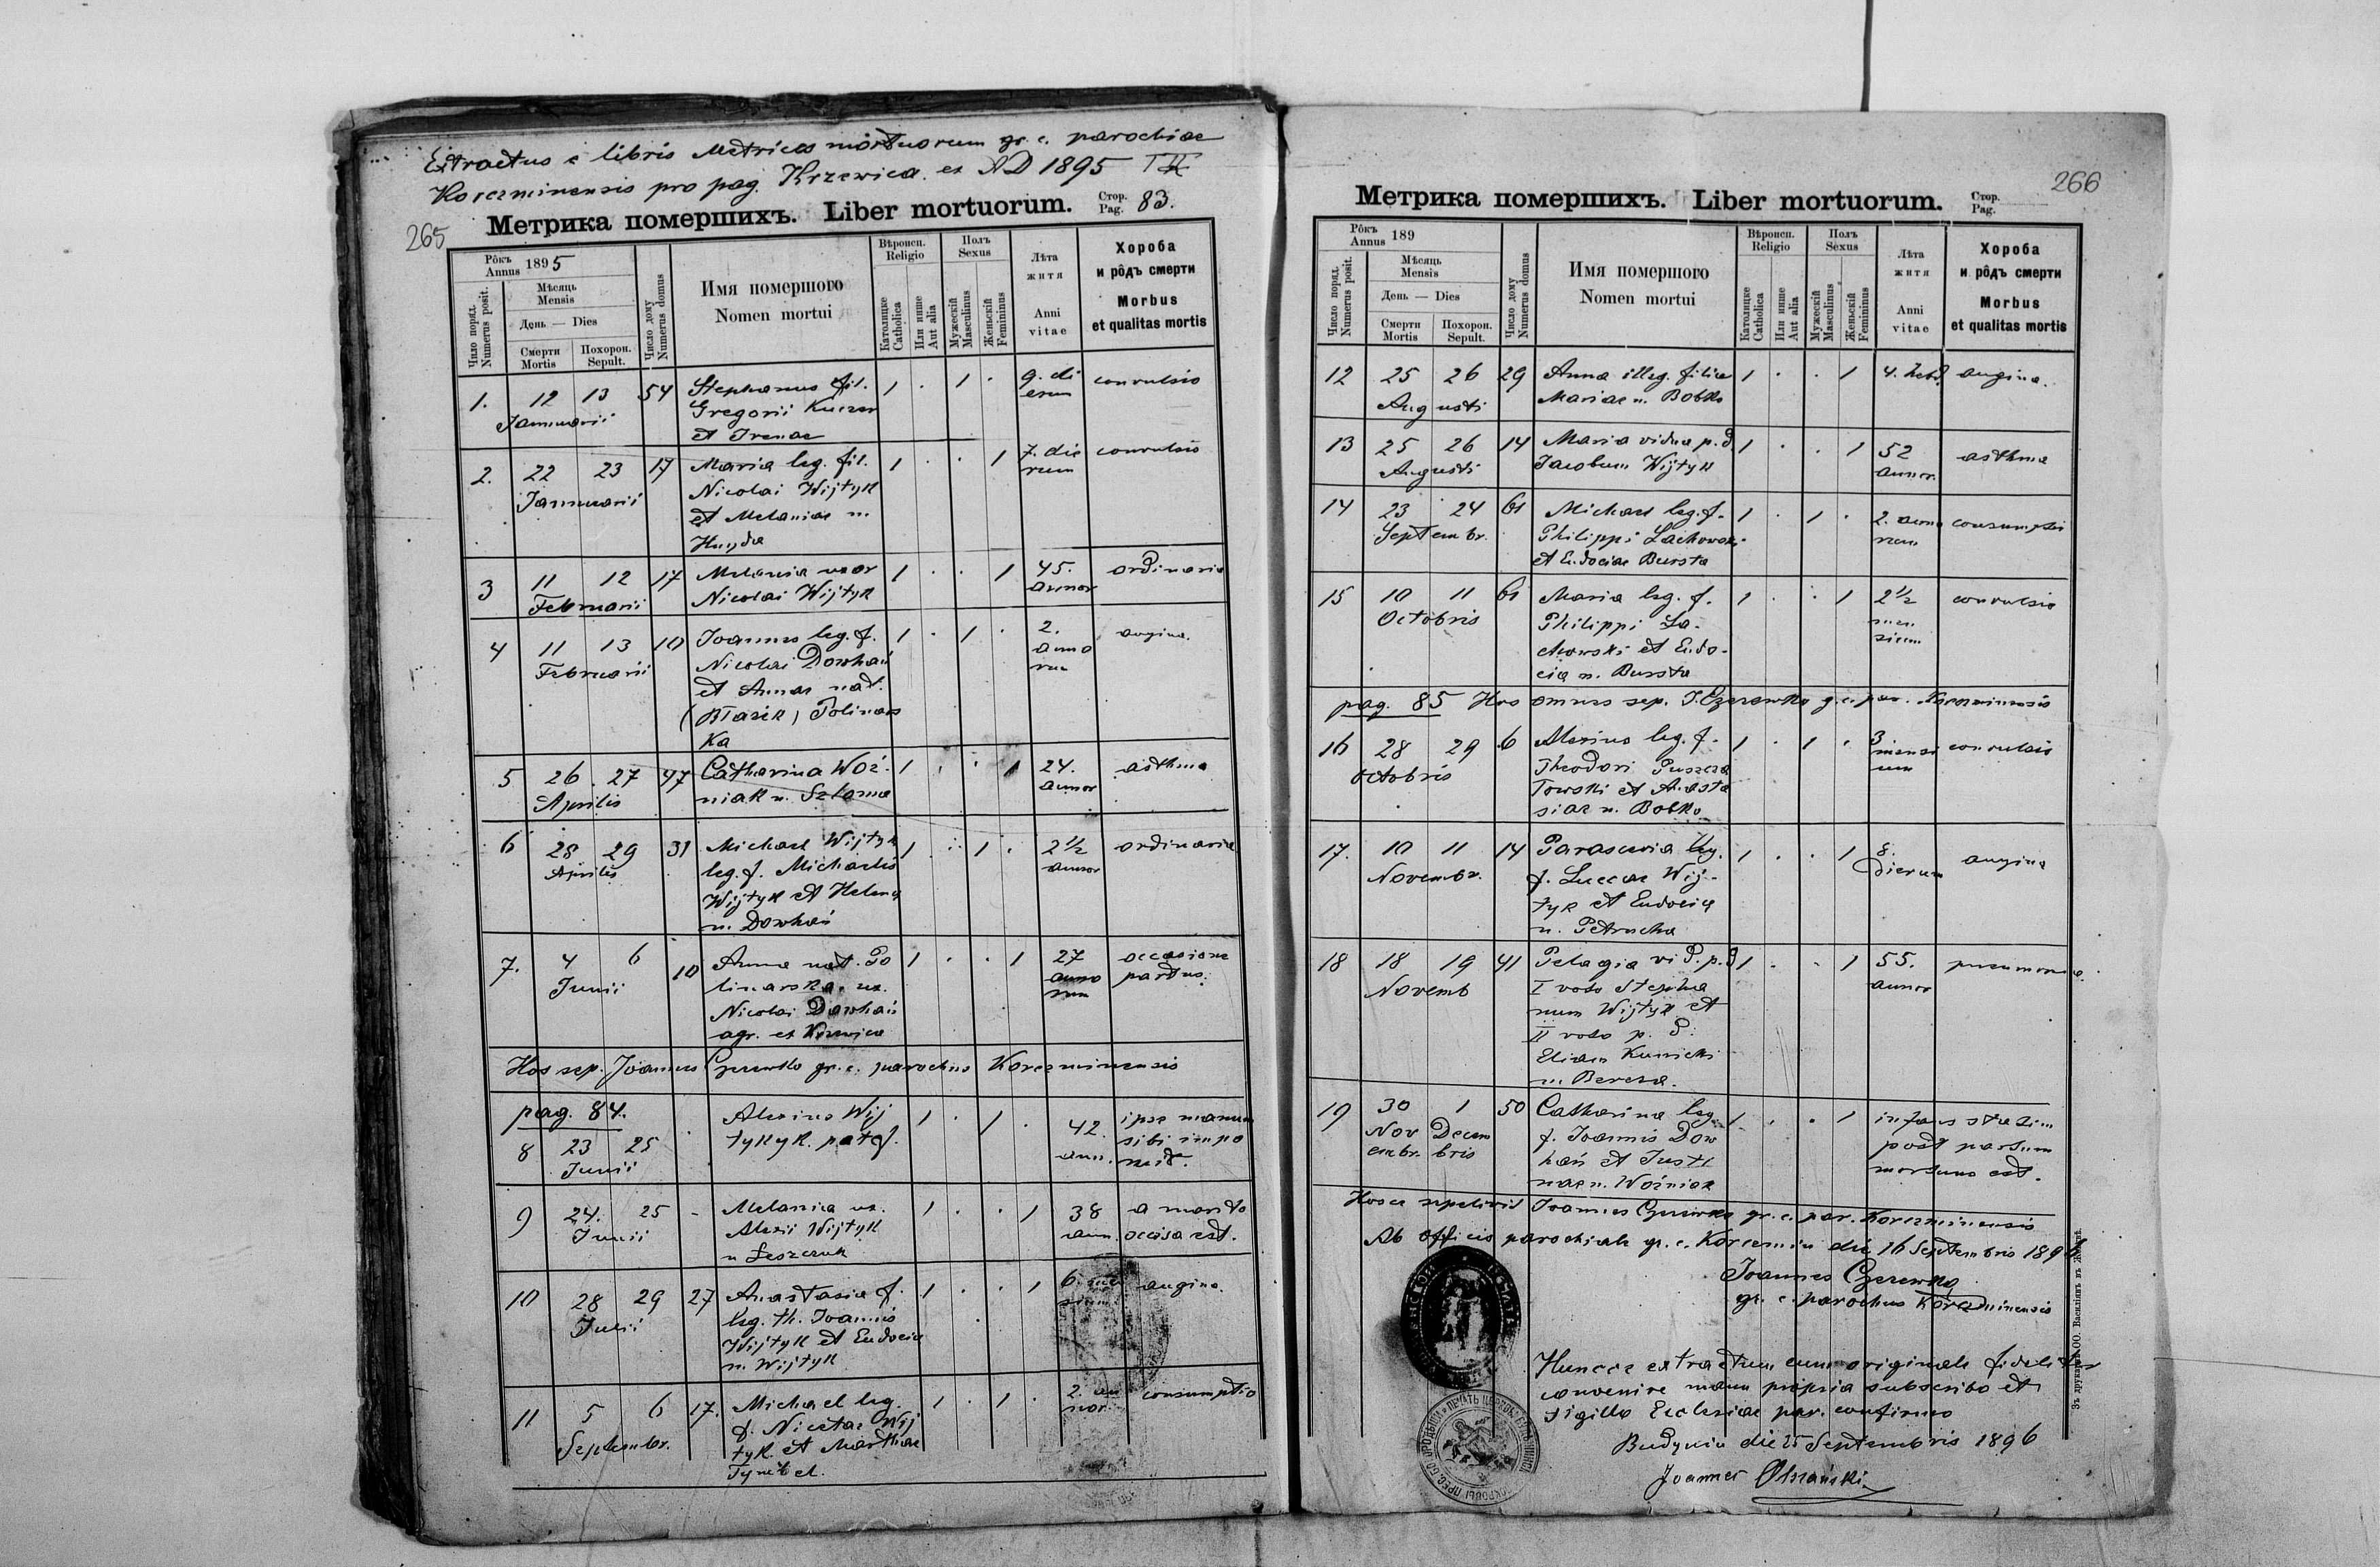 Extractus e libris Metrices mortuorum gr. c. parochiae
Korczminensis pro pag. Krzewica ex AD 1895
265
Метрика помершихъ. Liber mortuorum. Стор. Pag. 83.
Рôкъ Annus 1895
Мѣсяць Mensis
День — Dies
Смерти Mortis
Похорон. Sepult.
Число поряд. Numerus posit.
Число дому Numerus domus
Имя помершого
Nomen mortui
Вѣроисп. Religio
Католицке Catholica
Или инше Aut alia
Полъ Sexus
Мужескій Masculinus
Женьскій Femininus
Лѣта житя
Anni vitae
Хороба
и рôдъ смерти
Morbus
et qualitas mortis
1. 12 13 54 Stephanus fil. 1 . 1 . 9. di convulsio
Januarii Gregorii Kuczer erum
et Irenae
2. 22 23 17 Maria leg. fil. 1 . . 1 7. die convulsio
Januarii Nicolai Wijtyk rum
et Melaniae n.
3 11 12 17 Melania uxor 1 . . 1 45. ordinaria
Februarii Nicolai Wijtyk annor
4 11 13 10 Joannes leg. f. 1 . 1 . 2. angina.
Februarii Nicolai Dowhań anno
et Annae nat. rum
(Błazik) Polinars
ka
5 26 27 97 Catharina Woź- 1 . . 1 24. asthma
Aprilis niak n. annor
6 28 29 31 Michael Wijtyk 1 . 1 . 2 1/2 ordinaria
Aprilis leg. f. Michaelis annor
Wijtyk et Helena
n. Dowhań
7. 4 6 10 Anna nat. Po 1 . . 1 27 occasione
Junii linarska. ux. anno partus.
Nicolai Dowhań rum
agr. ex Krzewica
Hos sep. Joannes Czerewko gr. c. parochus Korczminensis
pag. 84. Alexius Wij 1 . 1 . 42. ipse manum
8 23 25 tyk ann. sibi impo
Junii suit.
9 24. 25 - Melania ux. 1 . . 1 38 a marito
Junii Alexii Wijtyk ann. occisa est.
n Leszczuk
10 28 29 27 Anastasia f. 1 . . 1 6. angina.
leg. th. Joannis
Wijtyk et Eudocia
n. Wijtyk
11 5 6 17. Michael leg. 1 . 1 . 2. an consumptio
Septembr. f. Nicetae Wij nor.
tyk et Marthae
266
Метрика помершихъ. Liber mortuorum. Стор. Pag.
Рôкъ Annus 189
Мѣсяць Mensis
День — Dies
Смерти Mortis
Похорон. Sepult.
Число поряд. Numerus posit.
Число дому Numerus domus
Имя помершого
Nomen mortui
Вѣроисп. Religio
Католицке Catholica
Или инше Aut alia
Полъ Sexus
Мужескій Masculinus
Женьскій Femininus
Лѣта житя
Anni vitae
Хороба
и рôдъ смерти
Morbus
et qualitas mortis
12 25 26 29 Anna illeg. filia 1 . . 1 4. hebd. angina.
Augusti Mariae n. Bobko
13 25 26 14 Maria vidua p. d. 1 . . 1 52 asthma
Augusti Jacobum Wijtyk annor.
14 23 24 61 Michael leg. f. 1 . 1 . 2. anno consumptio
Septembr. Philippi Lachowski rum
et Eudociae Bursta
15 10 11 61 Maria leg. f. 1 . . 1 2 1/2 convulsio
Octobris Philippi La- men
chowski et Eudo- sium
cia n. Bursta
pag. 85 Hos omnes sep. J. Czerewko g. c. par. Korczminensis
16 28 29 6 Alexius leg. f. 1 . 1 . 3 convulsio
Octobris Theodori Puszcza mensi
Towski et Anasta um
siae n. Bobko
17. 10 11 14 Parascevia leg. 1 . . 1 8. angina
Novembr. f. Lucae Wij- dierum
tyk et Eudocia
n. Petrucha
18 18 19 41 Pelagia vid. p. d 1 . . 1 55. pneumonia
Novemb I voto Stepha annor
num Wijtyk et
II voto p. d.
Eliam Kunicki
n. Bereza.
19 30 1 50 Catharina leg. 1 . . 1 infans statim
Nov Decem f. Joannis Dow post partum
embr. bris hań et Justi mortuus est.
nae n. Woźniak
Hosce sepelivit Joannes Czerewko gr. c. par. Korczminensis
Ab officio parochiale gr. c. Korczmin die 16 Septembris 1896
Joannes Czerewko
gr. c. parochus Korczminensis
Huncce extractum cum originale fideliter
convenire manu propria subscribo et
sigillo Ecclesiae par. confirmo
Budynin die 25 Septembris 1896
Joannes Olszański
Зъ друкарнѣ ОО. Василіянъ въ Жовквѣ.